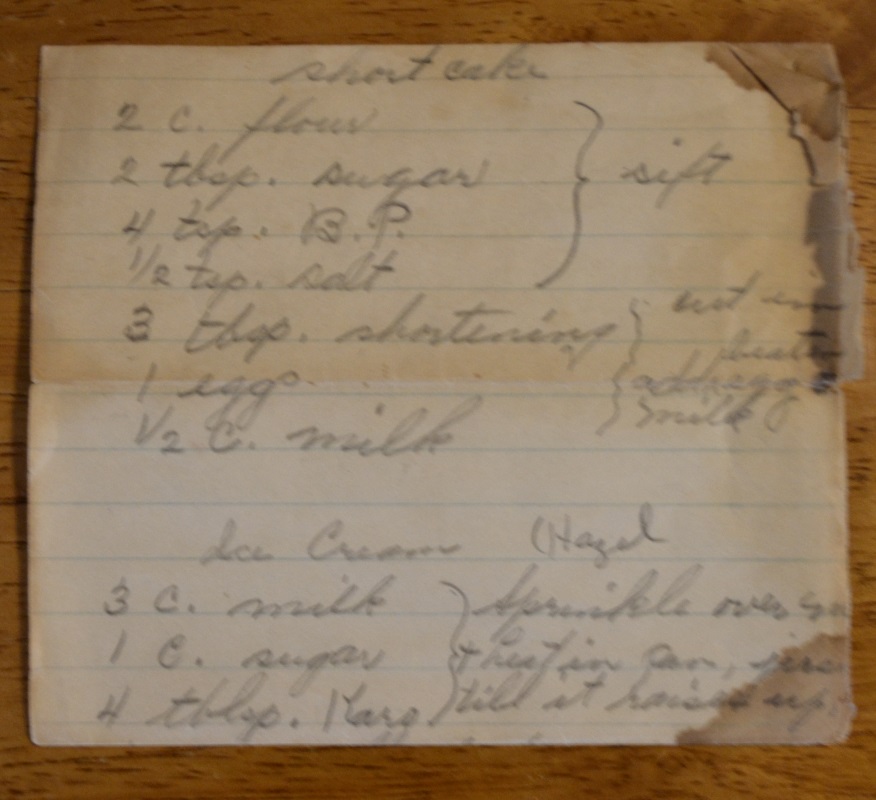 short cake
2 c. flour
2 tbsp. sugar } sift
4 tsp. B.P.
1/2 tsp. salt
3 tbsp. shortening } cut in
1 eggs } beaten add egg &
1/2 C. milk milk
Ice Cream (Hazel
3 C. milk } Sprinkle over
1 C. sugar } & heat in pan,
4 tblsp. Karo } till it raises up.